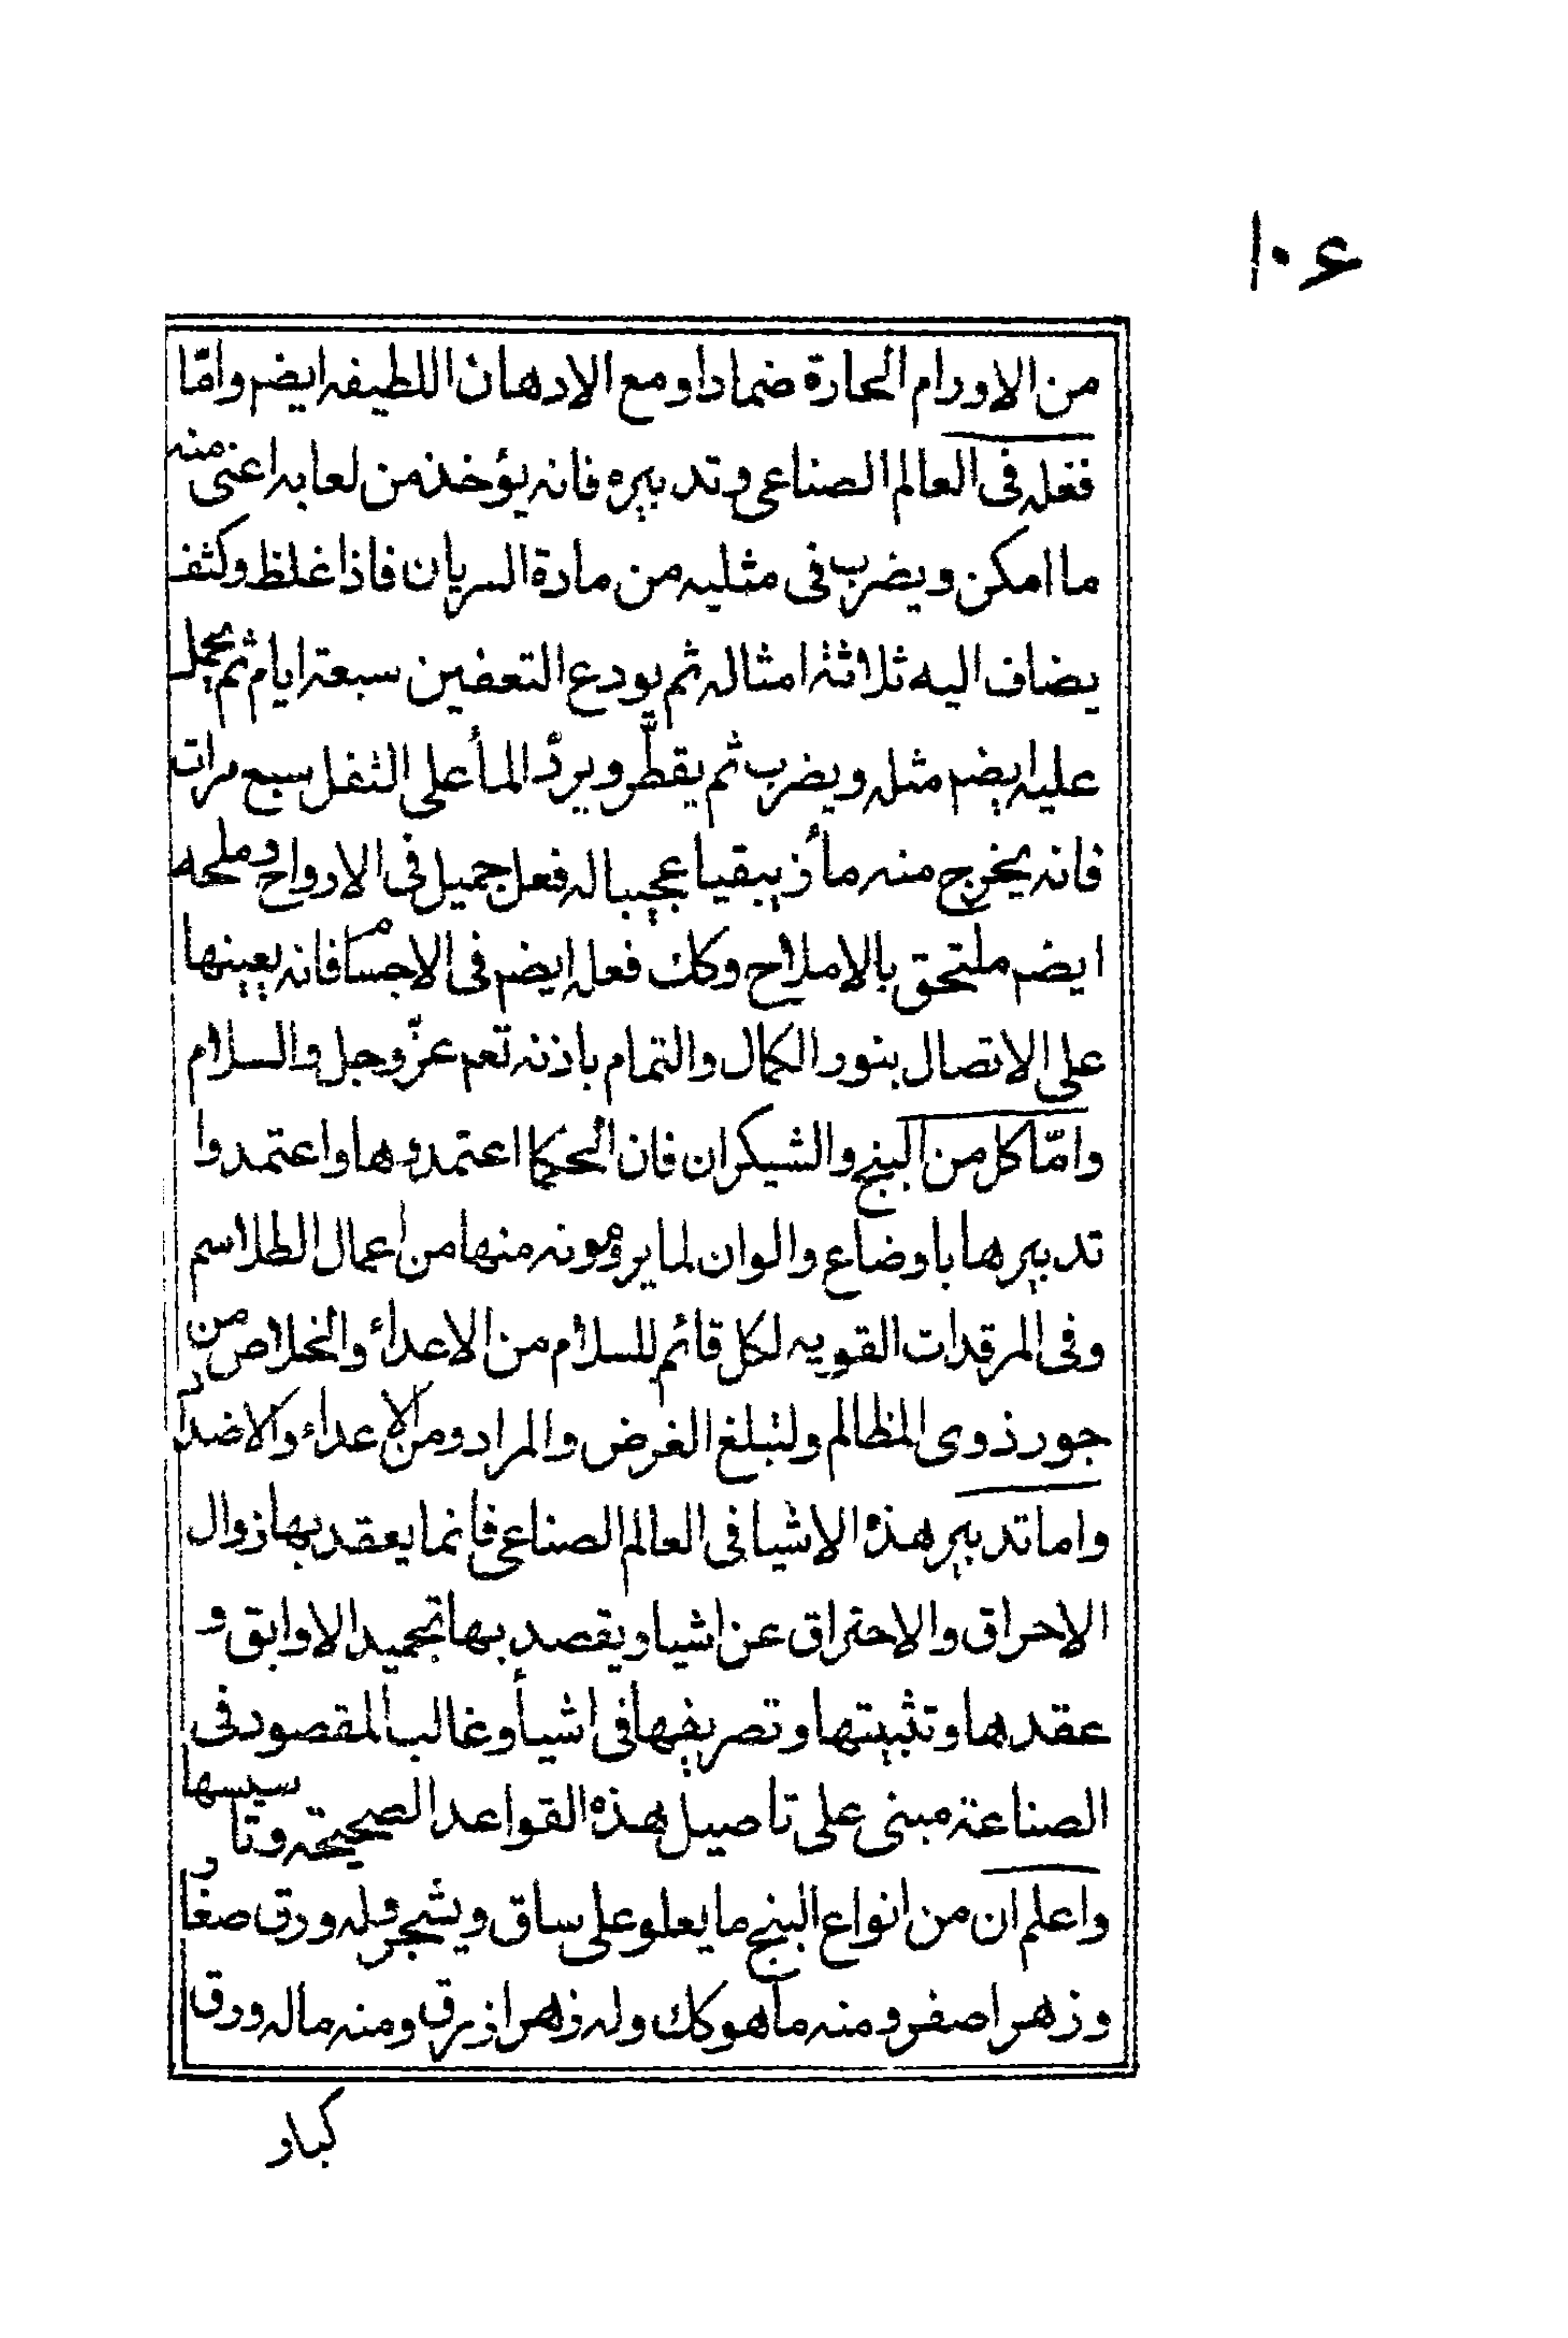 ١٠٤
من الاورام الحارة ضمادا ومع الادهان اللطيفه ايضم وامّا
فعله فى العالم الصناعى وتدبيره فانه يؤخذ من لعابه اعنى منه
ما امكن ويضرب فى مثليه من مادة السريان فاذا غلظ وكثف
يضاف اليه ثلاثة امثاله ثم يودع التعفين سبعة ايام ثم يحمل
عليه ايضم مثله ويضرب ثم يقطّر ويردّ المأ على الثفل سبع مرات
فانه يخرج منه مأ زيبقيا عجيبا له فعل جميل فى الارواح وملحه
ايضم ملتحق بالاملاح وكك فعله ايضم فى الاجسام فانه يعينها
على الاتصال بنور الكمال والتمام باذنه تعم عزّ وجل والسلام
وامّا كل من البنج والشيكران فان الحكما اعتمدوها واعتمدوا
تدبيرها باوضاع والوان لما يرومونه منها من اعمال الطلاسم
وفى المرقدات القويه لكل قائم للسلام من الاعداء والخلاص من
جور ذوى المظالم ولتبلغ الغرض والمراد ومن الاعداء والاضداد
واما تدبير هذه الاشيا فى العالم الصناعى فانما يعقد بها زوال
الاحراق والاحتراق عن اشيا ويقصد بها تجميد الاوابق و
عقدها وتثبيتها وتصريفها فى اشيأ وغالب المقصود فى
الصناعة مبنى على تاصيل هذه القواعد الصحيحة وتاسيسها
واعلم ان من انواع البنج ما يعلو على ساق ويشجر وله ورق صغار
وزهر اصفر ومنه ما هو كك وله زهر ازرق ومنه ماله ورق
كبار